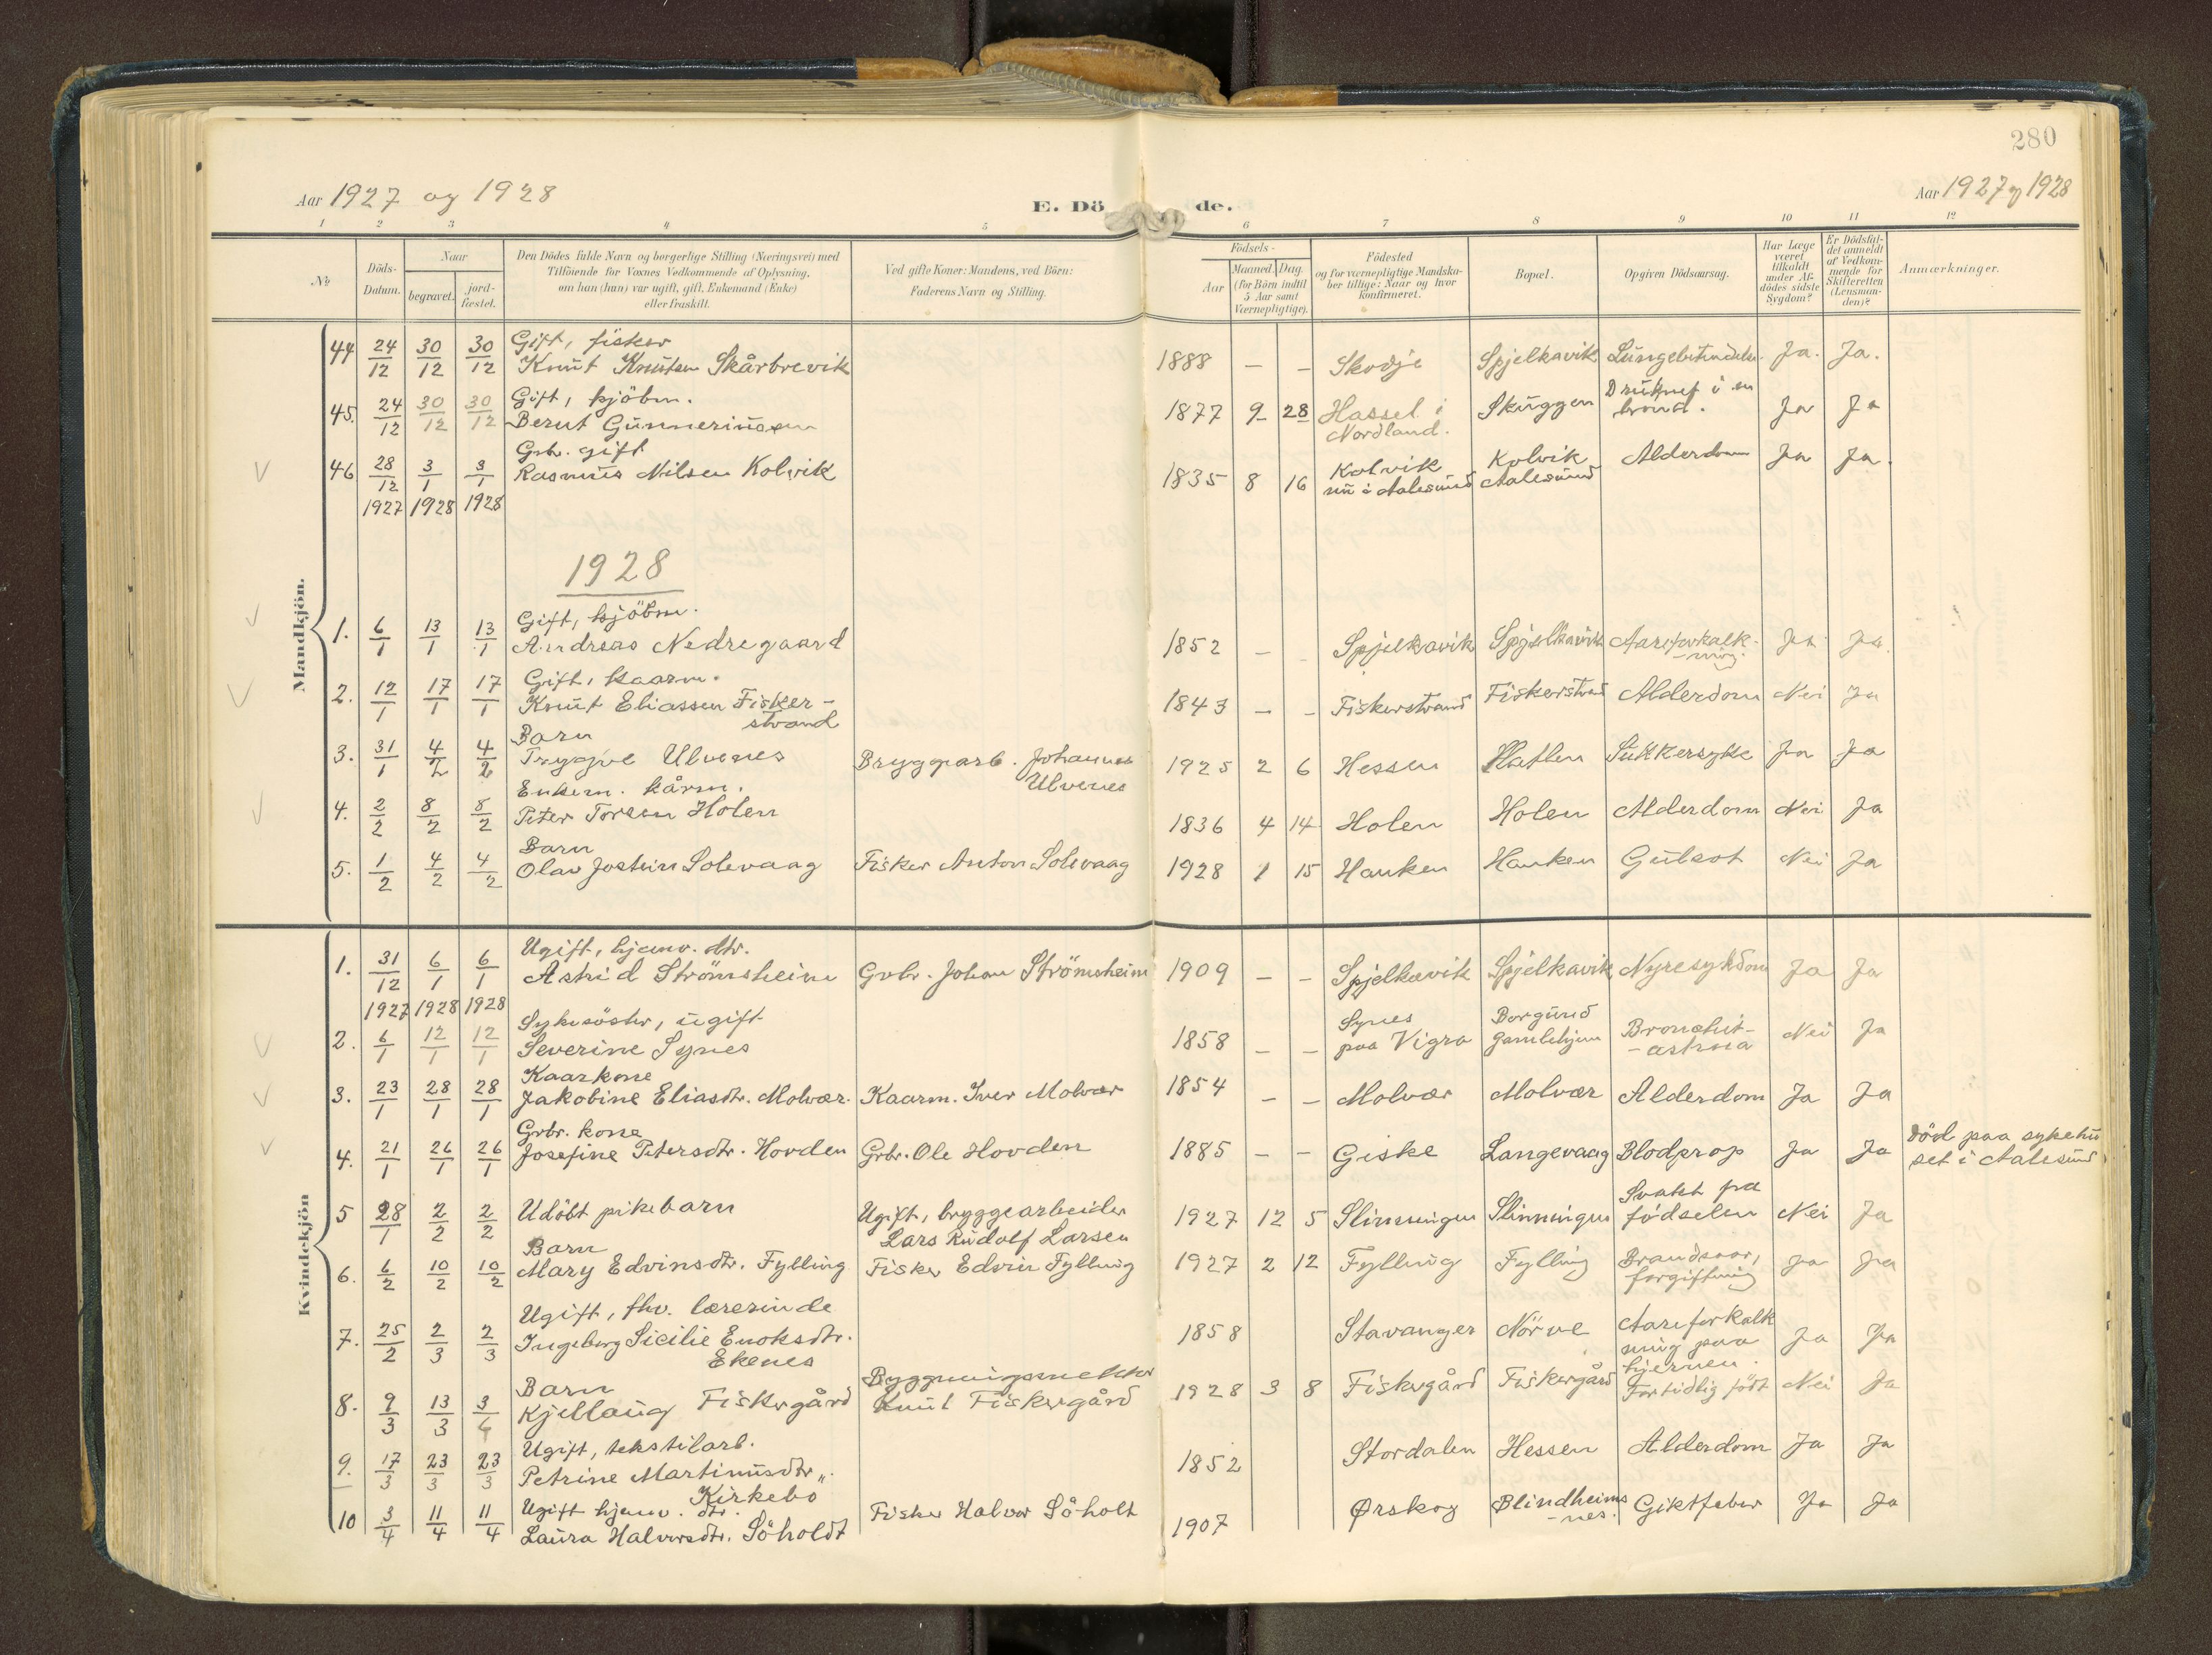 280
Aar 1927 og 1928
E. Dö de.
Aar 1927 og 1928
1 2 3 4 5 6 7 8 9 10 11 12
No
Döds-Datum.
Naar
begravet. jord-fæstet.
Den Dödes fulde Navn og borgerlige Stilling (Næringsvei) med
Tilföiende for Voxnes Vedkommende af Oplysning,
om han (hun) var ugift, gift, Enkemand (Enke)
eller fraskilt.
Ved gifte Koner: Mandens, ved Börn:
Faderens Navn og Stilling.
Födsels-
Aar
Maaned. Dag.
(for Börn indtil
5 Aar samt
Værnepligtige).
Födested
og for værnepligtige Mandska-
ber tillige: Naar og hvor
konfirmeret.
Bopæl.
Opgiven Dödsaarsag.
Har Læge
været
tilkaldt
under Af-
dödes sidste
Sygdom?
Er Dödsfal-
det anmeldt
af Vedkom-
mende for
Skifteretten
(Lensman-
den)?
Anmærkninger.
Mandkjön.
Gift, fisker
44 24/12 30/12 30/12 Knut Knutsen Skårbrevik 1888 – – Skodje Spjelkavik Lungebetendelse Ja. Ja.
Gift, kjöbm.
45. 24/12 30/12 30/12 Bernt Gunneriussen 1877 9 28 Hassel i Nordland. Skuggen Druknet i en brönd. Ja Ja
Grb. gift
46 28/12 3/1 3/1 Rasmus Nilsen Kolvik 1835 8 16 Kolvik nu i Aalesund Kolvik Aalesund Alderdom Ja Ja.
1927 1928 1928
1928
Gift, kjöbm.
1. 6/1 13/1 13/1 Andreas Nedregaard 1852 – – Spjelkavik Spjelkavik Aareforkalk-ning. Ja Ja.
Gift, kaarm.
2. 12/1 17/1 17/1 Knut Eliassen Fisker-strand 1843 – – Fiskerstrand Fiskerstrand Alderdom Nei Ja
Barn
3. 31/1 4/2 4/2 Trygve Ulvenes Bryggarb. Johannes Ulvenes 1925 2 6 Hessen Hatlen Sukkersyke Ja Ja
Enkem. kårm.
4. 2/2 8/2 8/2 Peter Torsen Holen 1836 4 14 Holen Holen Alderdom Nei Ja
Barn
5. 1/2 4/2 4/2 Olav Jostein Solevaag Fisker Anton Solevaag 1928 1 15 Hauken Hauken Gulsot Nei Ja
Kvindekjön
Ugift, hjemv. dtr.
1. 31/12 6/1 6/1 Astrid Strömsheim Grbr. Johan Strömsheim 1909 – – Spjelkavik Spjelkavik Nyresykdom Ja Ja
1927 1928 1928
Sykesöster, ugift
2. 6/1 12/1 12/1 Severine Synes 1858 – – Synes paa Vigra Borgund Gamlehjem Bronchit-astma Nei Ja
Kaarkone
3. 23/1 28/1 28/1 Jakobine Eliasdtr. Molvær. Kaarm. Iver Molvær 1854 – – Molvær Molvær Alderdom Ja Ja
Grbr. kone
4. 21/1 26/1 26/1 Josefine Petersdtr. Hovden Grbr. Ole Hovden 1885 – – Giske Langevaag Blodprop Ja Ja död paa sykehu set i Aalesund
5 28/1 2/2 2/2 Udöbt pikebarn Ugift, bryggearbeider Lars Rudolf Larsen 1927 12 5 Slinningen Slinningen Svakt fra födselen Nei Ja
Barn
6. 6/2 10/2 10/2 Mary Edvinsdtr. Fylling Fisker Edvin Fylling 1927 2 12 Fylling Fylling Brandsaar, forgiftning Ja Ja
Ugift, fhv. lærerinde
7. 25/2 2/3 2/3 Ingeborg Sicilie Enoksdtr. Ekenes 1858 Stavanger Nörve Aareforkalk ning paa hjernen. Ja Ja
Barn
8. 9/3 13/3 3/4 Kjellaug Fiskergård Knut Fiskergård 1928 3 8 Fiskergård Fiskergård For tidlig födt Nei Ja
Ugift, tekstilarb.
9. 17/3 23/3 23/3 Petrine Martinusdtr. Kirkebö 1852 Stordalen Hessen Alderdom Ja Ja
Ugift hjemv. dtr.
10 3/4 11/4 11/4 Laura Halvorsdtr. Söholdt Fisker Halvor Söholt 1907 Ørskog Blindheims-nes. Giktfeber Ja Ja